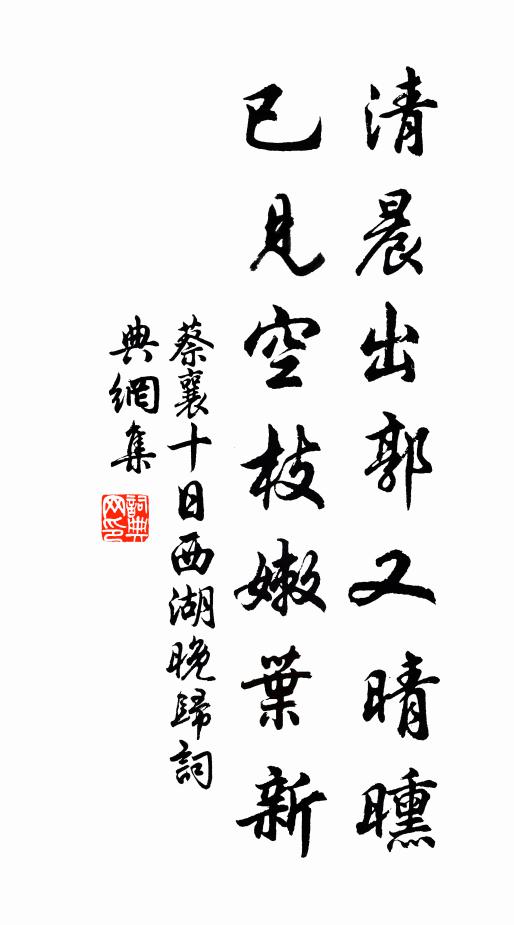 清晨出郭又晴曛
已見空枝嫩葉新
蔡襄十日西湖晚歸詞
典網集
詞典网印